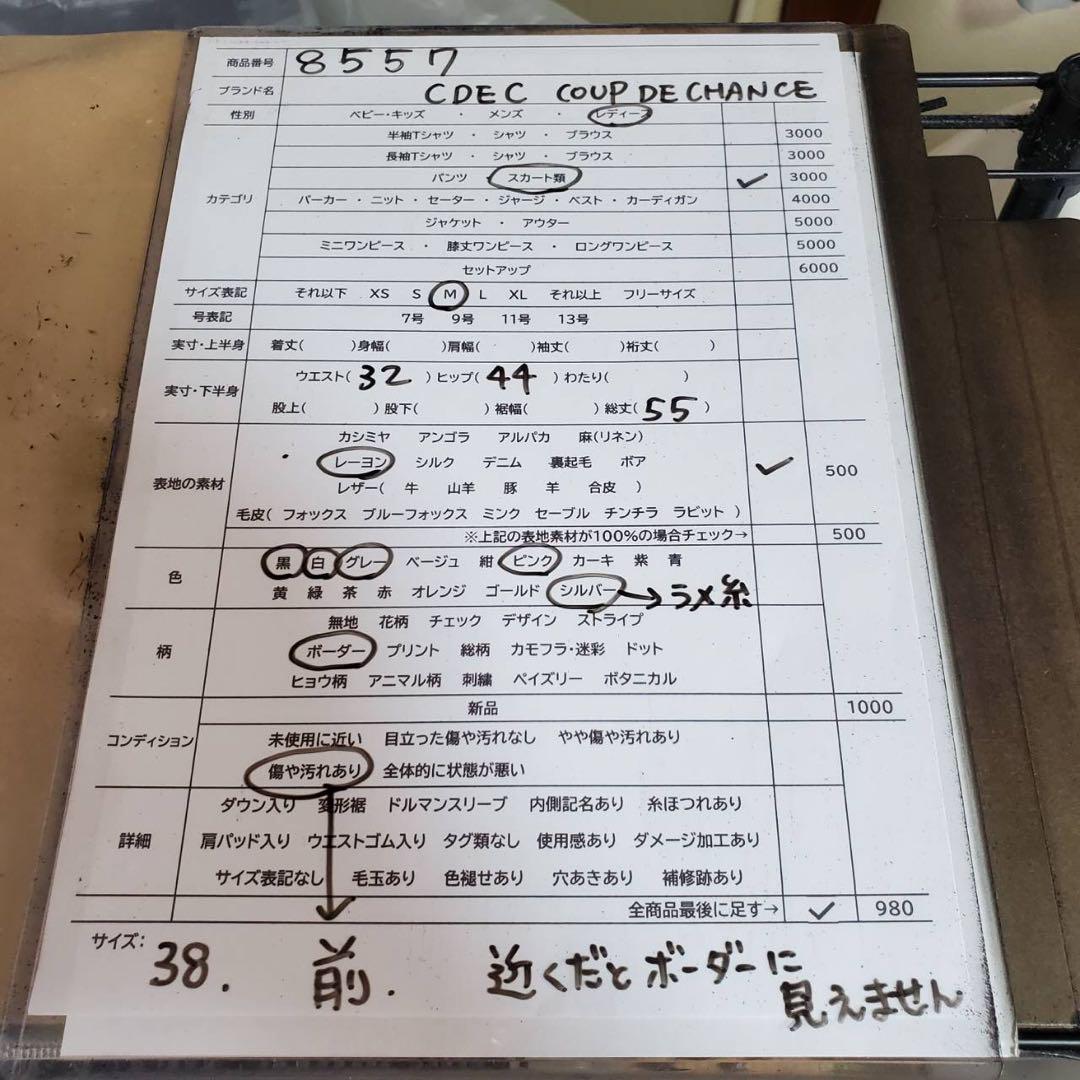 商品番号 8557
ブランド名 CDEC COUP DE CHANCE
性別 ベビー・キッズ ・ メンズ ・ レディース
半袖Tシャツ ・ シャツ ・ ブラウス 3000
長袖Tシャツ ・ シャツ ・ ブラウス 3000
パンツ ・ スカート類 ✓ 3000
カテゴリ パーカー ・ ニット ・ セーター ・ ジャージ ・ ベスト ・ カーディガン 4000
ジャケット ・ アウター 5000
ミニワンピース ・ 膝丈ワンピース ・ ロングワンピース 5000
セットアップ 6000
サイズ表記 それ以下 XS S M L XL それ以上 フリーサイズ
号表記 7号 9号 11号 13号
実寸・上半身 着丈( )身幅( )肩幅( )袖丈( )裄丈( )
実寸・下半身 ウエスト( 32 )ヒップ( 44 )わたり( )
股上( )股下( )裾幅( )総丈( 55 )
カシミヤ アンゴラ アルパカ 麻(リネン)
レーヨン シルク デニム 裏起毛 ボア ✓ 500
表地の素材 レザー( 牛 山羊 豚 羊 合皮 )
毛皮( フォックス ブルーフォックス ミンク セーブル チンチラ ラビット )
※上記の表地素材が100%の場合チェック→ 500
色 黒 白 グレー ベージュ 紺 ピンク カーキ 紫 青
黄 緑 茶 赤 オレンジ ゴールド シルバー→ラメ糸
無地 花柄 チェック デザイン ストライプ
柄 ボーダー プリント 総柄 カモフラ・迷彩 ドット
ヒョウ柄 アニマル柄 刺繍 ペイズリー ボタニカル
新品 1000
コンディション 未使用に近い 目立った傷や汚れなし やや傷や汚れあり
傷や汚れあり 全体的に状態が悪い
ダウン入り 変形裾 ドルマンスリーブ 内側記名あり 糸ほつれあり
詳細 肩パッド入り ウエストゴム入り タグ類なし 使用感あり ダメージ加工あり
サイズ表記なし 毛玉あり 色褪せあり 穴あきあり 補修跡あり
全商品最後に足す→ ✓ 980
サイズ: 38. 前. 近くだとボーダーに
見えません